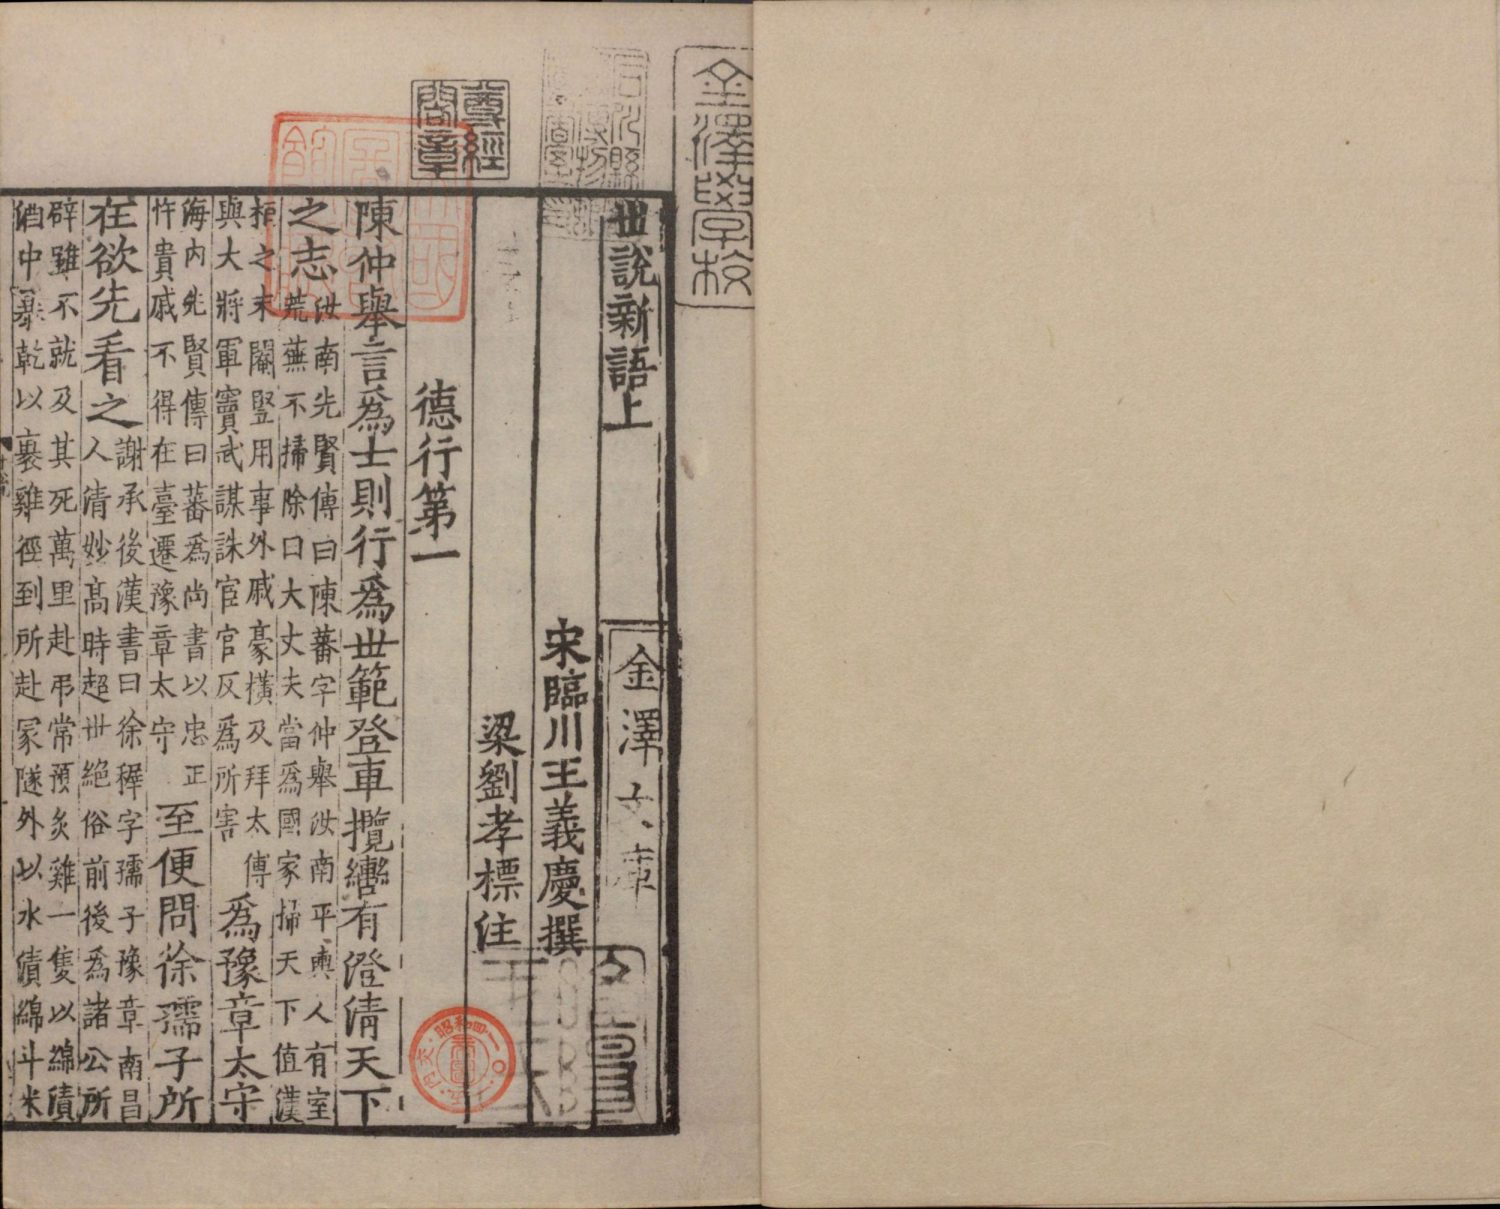 金澤學校
尊經閣章
世說新語上
金澤文庫
宋臨川王義慶撰
梁劉孝標注
德行第一
陳仲舉言爲士則行爲世範登車攬轡有澄清天下
之志
汝南先賢傳曰陳蕃字仲舉汝南平輿人有室
荒蕪不掃除曰大丈夫當爲國家掃天下值漢
桓之末閹豎用事外戚豪橫及拜太傅
與大將軍竇武謀誅宦官反爲所害
爲豫章太守
海內先賢傳曰蕃爲尚書以忠正
忤貴戚不得在臺遷豫章太守
至便問徐孺子所
在欲先看之
謝承後漢書曰徐稺字孺子豫章南昌
人清妙髙時超世絕俗前後爲諸公所
辟雖不就及其死萬里赴弔常預炙雞一隻以綿漬
酒中暴乾以裹雞徑到所赴冢隧外以水漬綿斗米